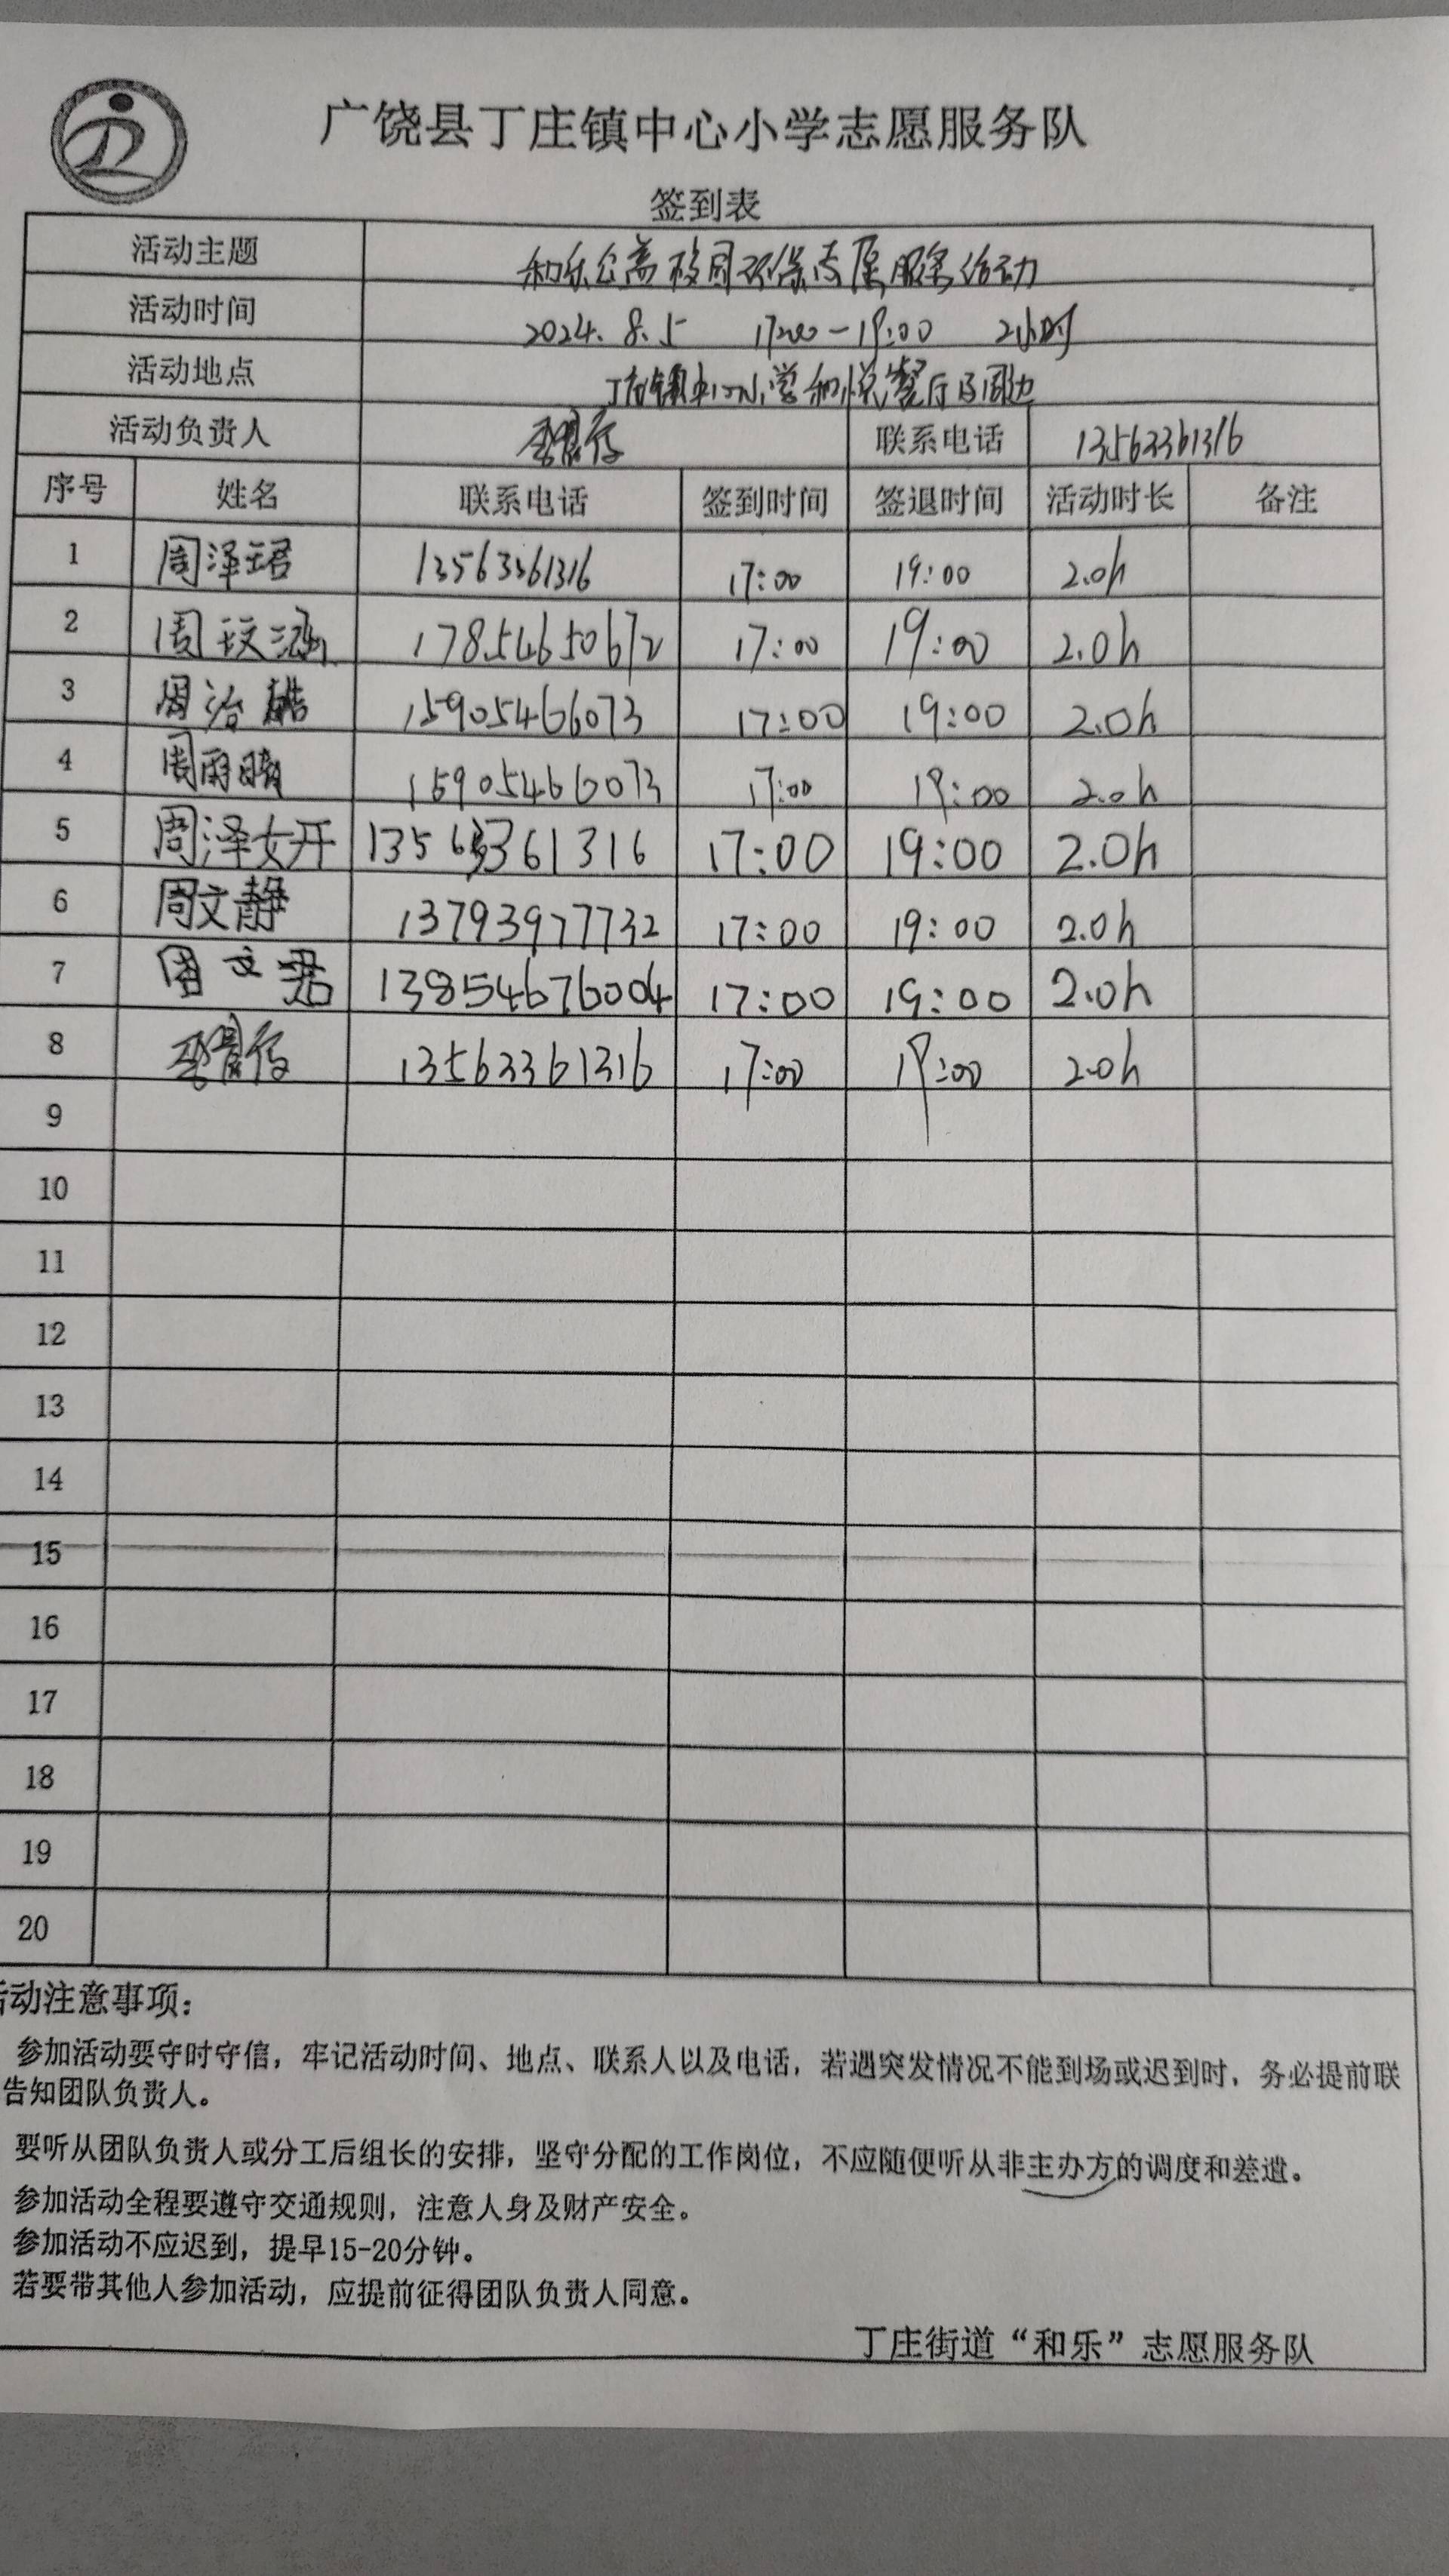 广饶县丁庄镇中心小学志愿服务队
签到表
活动主题 和乐公益校园环保志愿服务活动
活动时间 2024.8.5 17:00-19:00 2小时
活动地点 丁庄镇中心小学和悦餐厅及周边
活动负责人 联系电话 13563361316
序号 姓名 联系电话 签到时间 签退时间 活动时长 备注
1 周泽珺 13563361316 17:00 19:00 2.0h
2 周玟涵 17854650672 17:00 19:00 2.0h
3 周治皓 15905466073 17:00 19:00 2.0h
4 周雨晴 15905466073 17:00 19:00 2.0h
5 周泽妍 13563361316 17:00 19:00 2.0h
6 周文静 13793977732 17:00 19:00 2.0h
7 周文君 13854676004 17:00 19:00 2.0h
8 13563361316 17:00 19:00 2.0h
9
10
11
12
13
14
15
16
17
18
19
20
活动注意事项：
参加活动要守时守信，牢记活动时间、地点、联系人以及电话，若遇突发情况不能到场或迟到时，务必提前联
告知团队负责人。
要听从团队负责人或分工后组长的安排，坚守分配的工作岗位，不应随便听从非主办方的调度和差遣。
参加活动全程要遵守交通规则，注意人身及财产安全。
参加活动不应迟到，提早15-20分钟。
若要带其他人参加活动，应提前征得团队负责人同意。
丁庄街道“和乐”志愿服务队